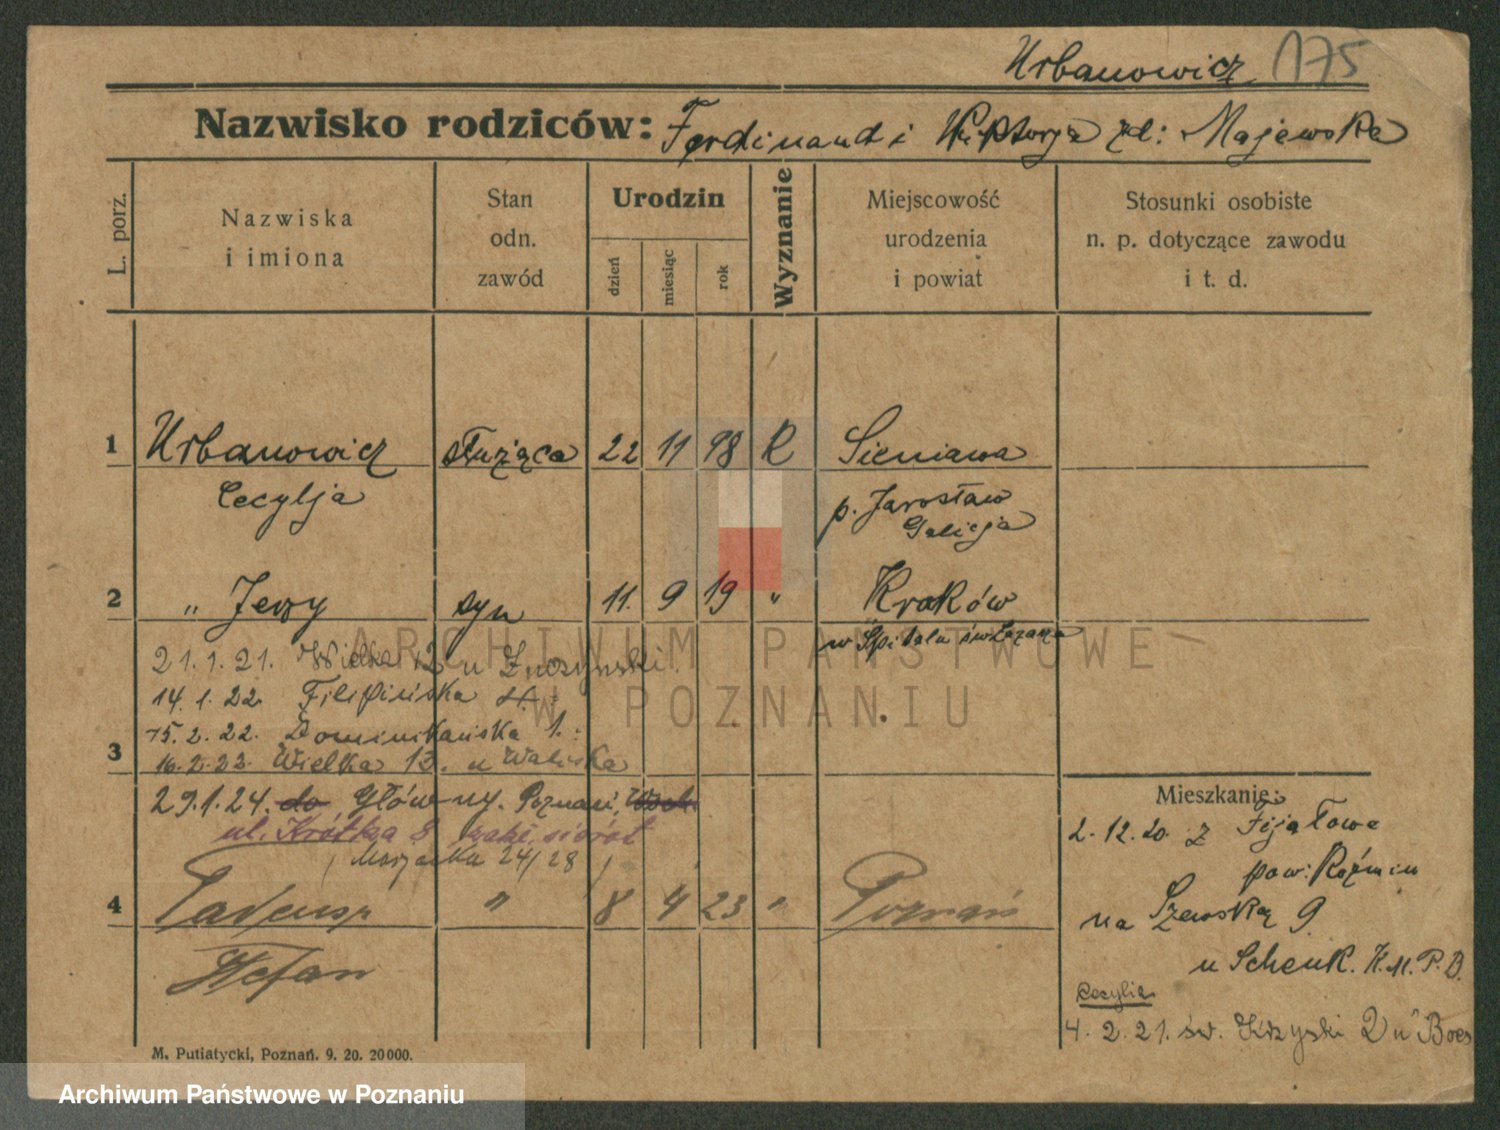 Urbanowicz 175
Nazwisko rodziców: Ferdinand i Wiktorja zd: Majewska
L. porz.
Nazwiska
i imiona
Stan
odn.
zawód
Urodzin
dzień
miesiąc
rok
Wyznanie
Miejscowość
urodzenia
i powiat
Stosunki osobiste
n. p. dotyczące zawodu
i t. d.
1 Urbanowicz służąca 22 11 98 R Sieniawa
Cecylja p. Jarosław
Galicja
2 " Jerzy syn 11. 9 19 " Kraków
w Spitalu św Łazarza
21.1.21. Wielka 12 u
14.1.22. Filipińska 4.
15.2.22. Dominikańska 1.
3
16.2.22. Wielka 13. u
29.1.24. do Główny. Poznań,
ul. Krótka zakł. sierot
24/28
4 Tadeusz " 8 4 23 " Poznań
Stefan
Mieszkanie:
2.12.20. z Fijałowa
pow: Koźmin
na Szewską 9
u Schenk. K.M.P.B.
Cecylia
4.2.21. św. 2 u
M. Putiatycki, Poznań. 9. 20. 20000.
ARCHIWUM PAŃSTWOWE
W POZNANIU
Archiwum Państwowe w Poznaniu